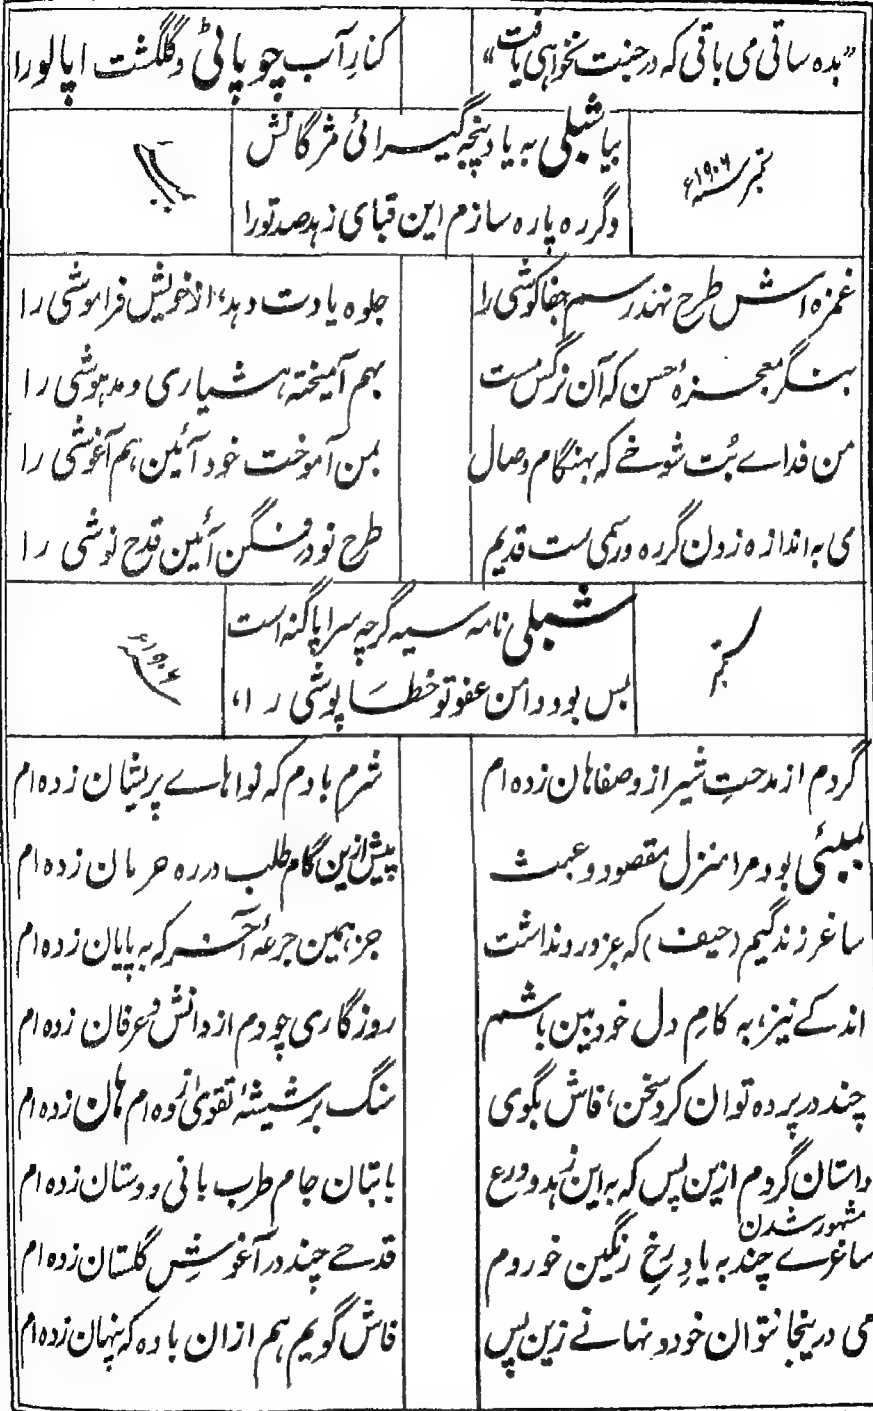 "بده ساقی می باقی که در جنت نخواهی یافت" کنارِ آب چوپاٹی و گلگشت اپالو را
بیا شبلی به یاد پنجه گیرائی مژگانش
ستمبر سنہ ۱۹۰۶ء
دگر ره پاره سازم این قبای زهد صد تو را
غمزه اش طرح نهد رسم جفاکوشی را جلوه یادت دهد، از خویش فراموشی را
بنگر معجزۂ حسن که آن نرگس مست بهم آمیخته هشیاری و مدهوشی را
من فداے بُت شوخے که بهنگام وصال بمن آموخت خود آئین هم آغوشی را
می به اندازه زدن گر ره و رسمی ست قدیم طرح نو در فگن آئین قدح نوشی را
شبلی نامه سیه گرچه سراپا گنه است
ستمبر سنہ ۱۹۰۶ء
بس بود دامن عفو تو خطا پوشی را،
گر دم از مدحتِ شیراز و صفاهان زده ام شرم بادم که نواهاے پریشان زده ام
بمبئی بود مرا منزل مقصود و عبث پیش ازین گام طلب در ره حرمان زده ام
ساغر زندگیم (حیف) که جز درد نداشت جز همین جرعۂ آخر که به پایان زده ام
اندکے نیز، به کامِ دل خود بین باشم روزگاری چو دم از دانش و عرفان زده ام
چند در پرده توان کرد سخن، فاش بگوی سنگ بر شیشۂ تقوی زده ام هان زده ام
داستان گردم ازین پس که به این زهد و ورع با بتان جام طرب با نی و دستان زده ام
مشهور شدن
ساغرے چند به یادِ رخِ رنگین خوردم قدحے چند در آغوشِ گلستان زده ام
می درینجا نتوان خورد نهانے زین پس فاش گویم هم ازان باده که پنهان زده ام